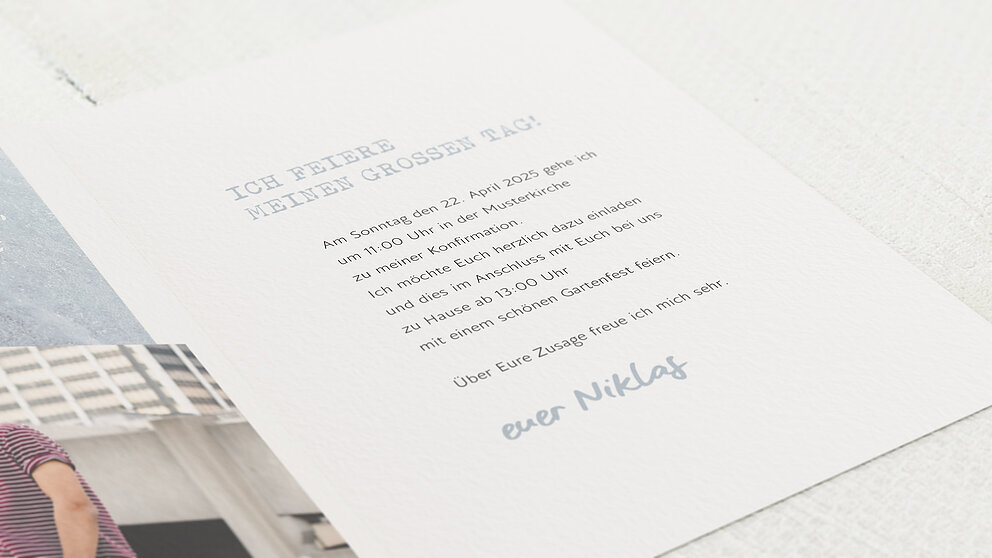 ICH FEIERE
MEINEN GROSSEN TAG!
Am Sonntag den 22. April 2025 gehe ich
um 11:00 Uhr in der Musterkirche
zu meiner Konfirmation.
Ich möchte Euch herzlich dazu einladen
und dies im Anschluss mit Euch bei uns
zu Hause ab 13:00 Uhr
mit einem schönen Gartenfest feiern.
Über Eure Zusage freue ich mich sehr.
euer Niklas